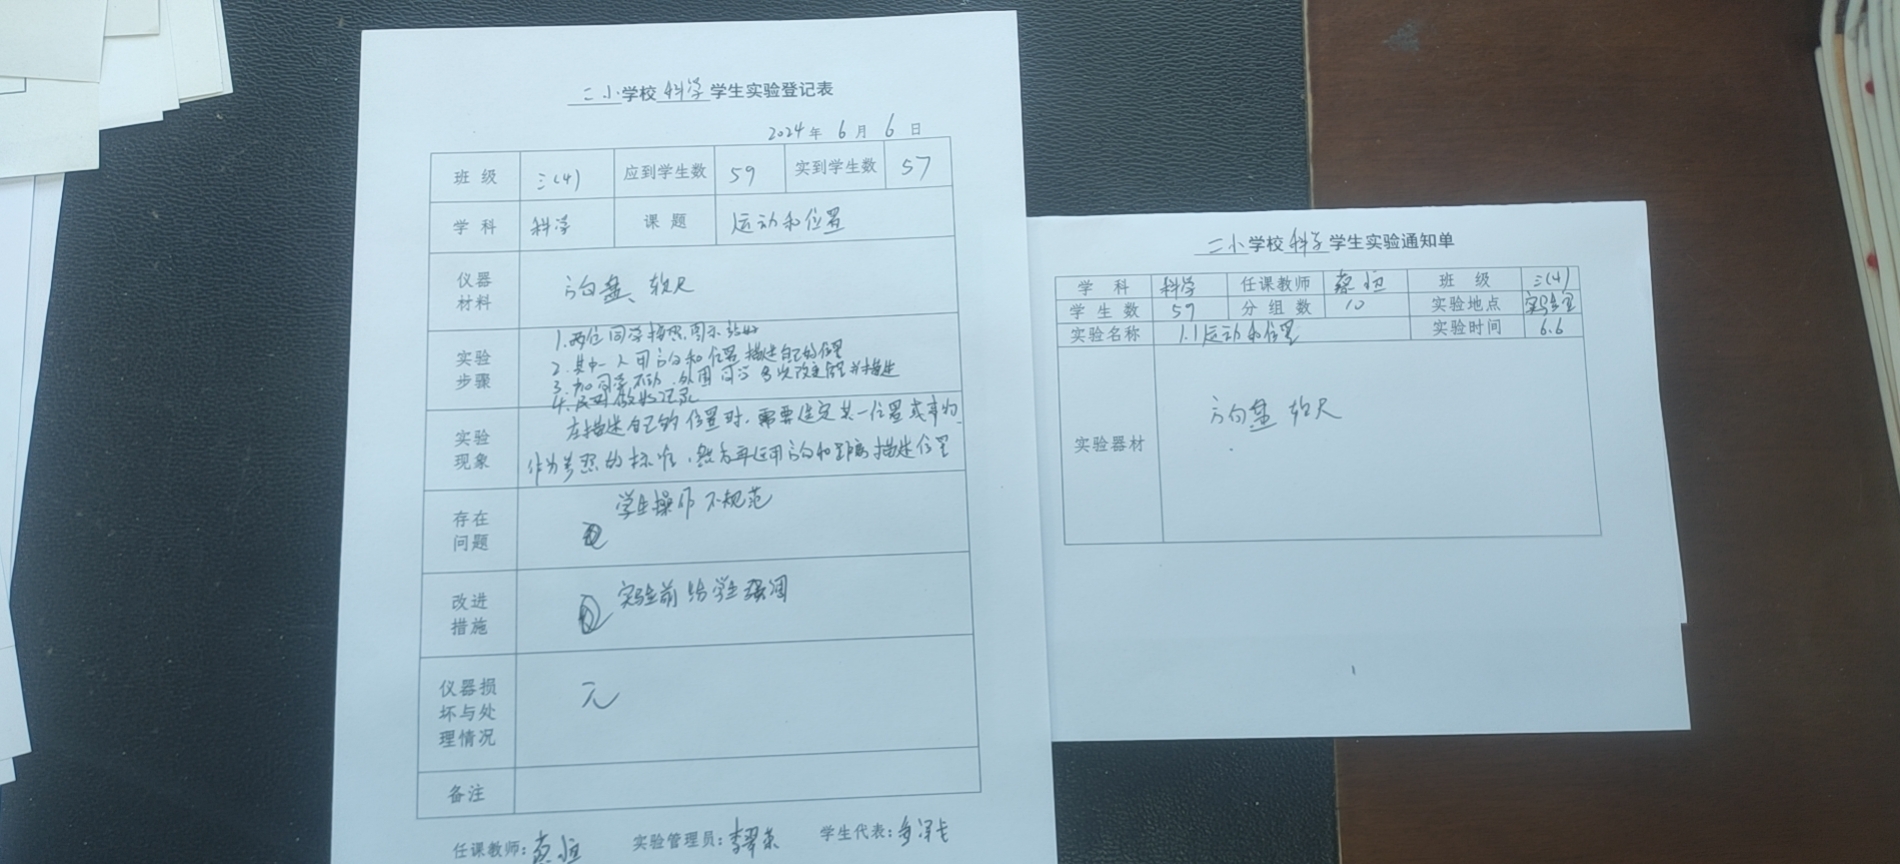 二小学校科学学生实验登记表
2024年6月6日
班级 三(4) 应到学生数 59 实到学生数 57
学科 科学 课题 运动和位置
仪器材料 方向盘、软尺
实验步骤 1.两位同学按照图示站好
2.其中一人用方向和位置描述自己的位置
3.同学不动,另一同学多次改变位置并描述
4.及时做好记录
实验现象 在描述自己的位置时,需要选定某一位置或事物
作为参照的标准,然后再运用方向和距离描述位置
存在问题 学生操作不规范
改进措施 实验前给学生强调
仪器损坏与处理情况 无
备注
任课教师: 实验管理员: 学生代表:
二小学校科学学生实验通知单
学科 科学 任课教师 班级 三(4)
学生数 59 分组数 10 实验地点 实验室
实验名称 1.1运动和位置 实验时间 6.6
实验器材 方向盘 软尺